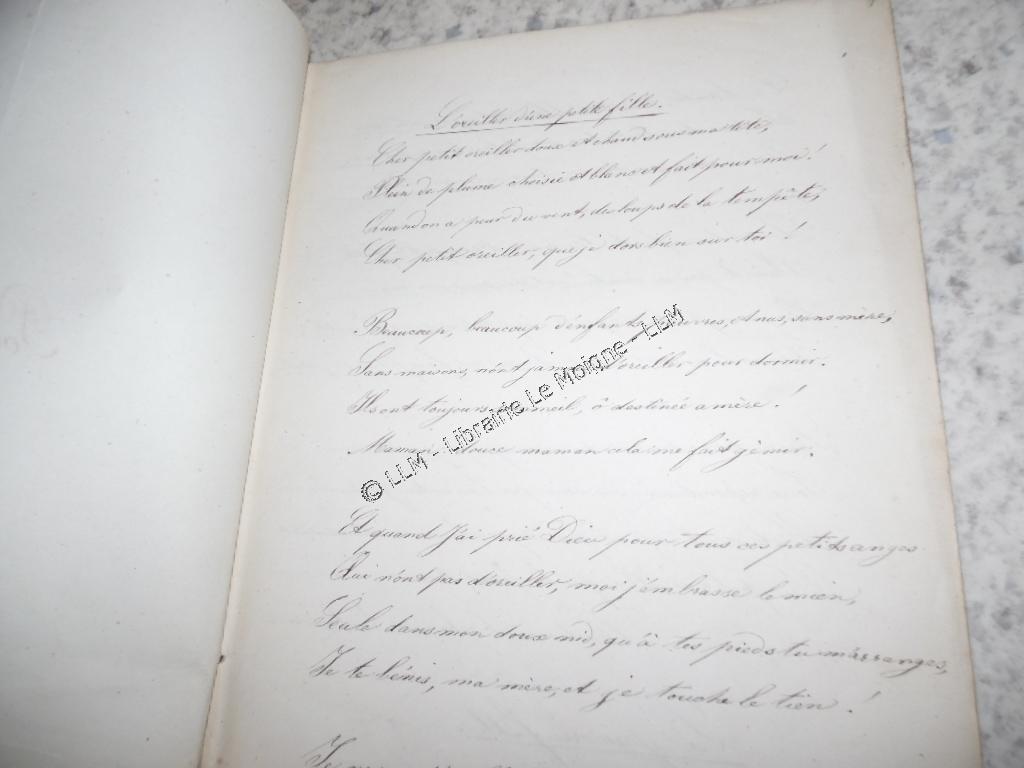 L'oreiller d'une petite fille.
Cher petit oreiller doux et chaud sous ma tête,
Plein de plume choisie et blanc et fait pour moi!
Quand on a peur du vent, des loups de la tempête,
Cher petit oreiller, que je dors bien sur toi!
Beaucoup, beaucoup d'enfants pauvres, et nus, sans mère,
Sans maisons, n'ont jamais d'oreiller pour dormir.
Ils ont toujours sommeil, ô destinée amère!
Maman douce maman cela me fait gémir.
Et quand J'ai prié Dieu pour tous ces petits anges
Qui n'ont pas d'oreiller, moi j'embrasse le mien,
Seule dans mon doux nid, qu'à tes pieds tu m'arranges,
Je te bénis, ma mère, et je touche le tien!
Je
© LLM - Librairie Le Moigne - LLM